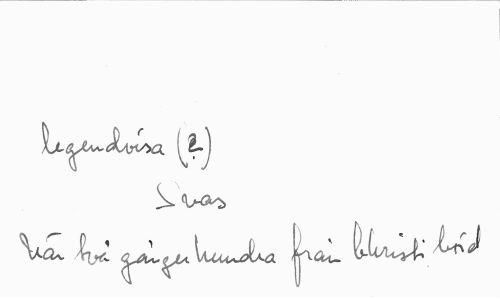 legendvisa (?)
Svas
När två gånger hundra från Christi död